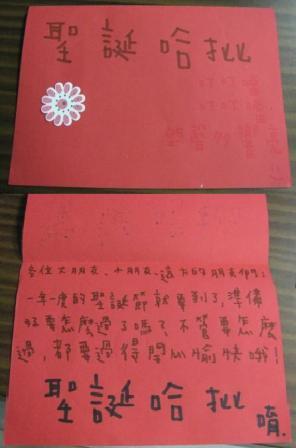 聖誕哈批
叮叮噹
叮叮噹
鈴聲多響亮
各位大朋友、小朋友、遠方的朋友們：
一年一度的聖誕節就要到了，準備
好要怎麼過了嗎？不管要怎麼
過，都要過得開心愉快哦！
聖誕哈批
唷.